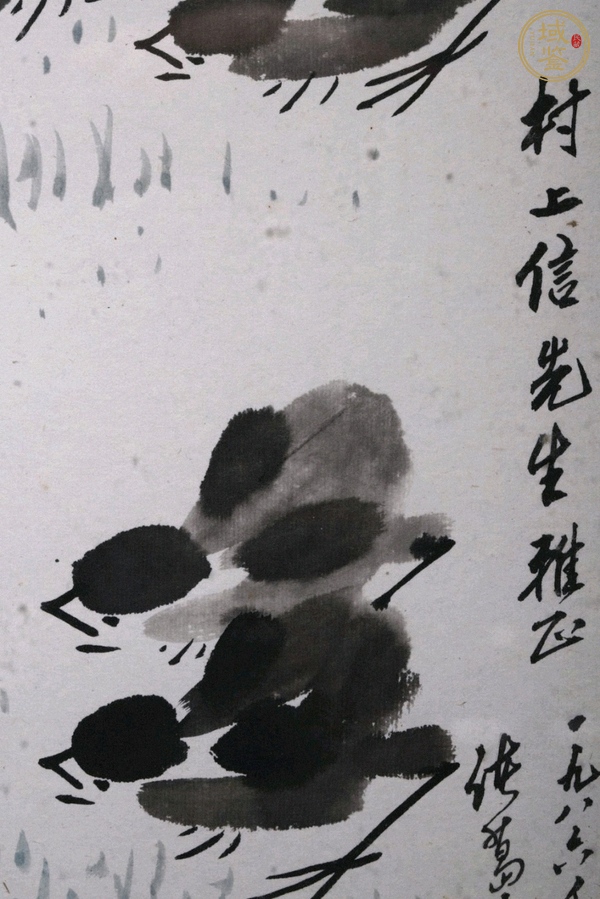 村上信先生雅正
一九八六年
域鉴